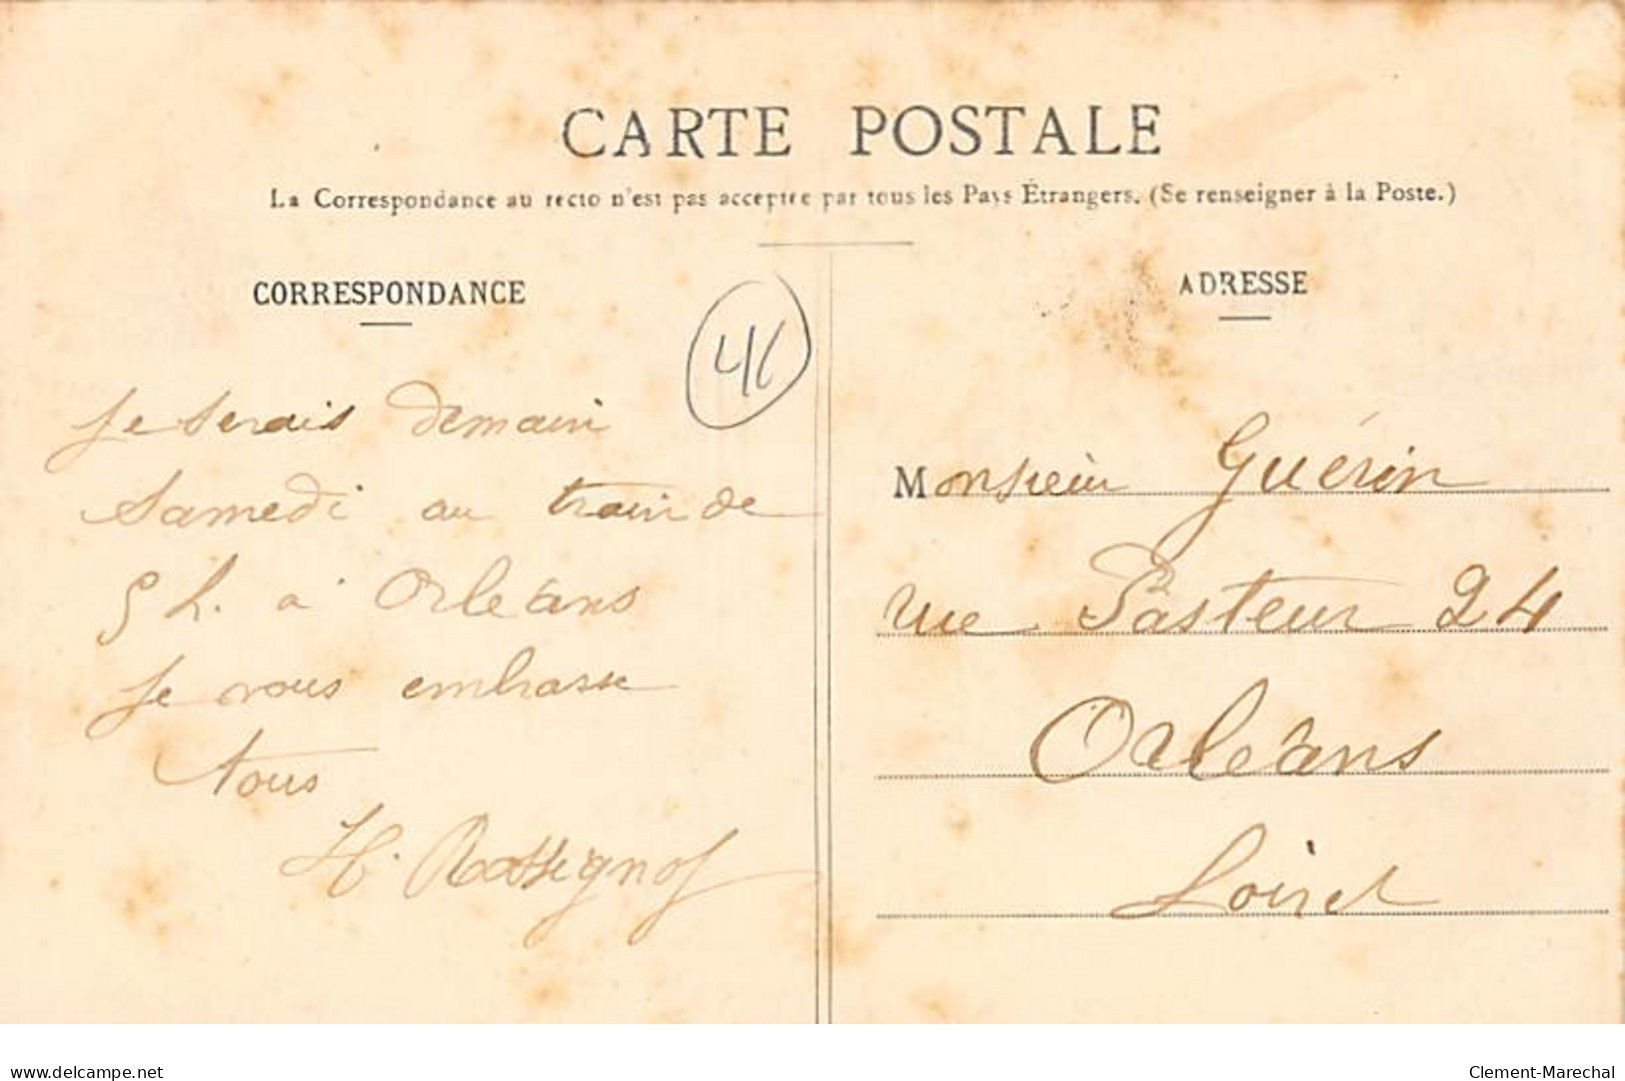 CARTE POSTALE
La Correspondance au recto n'est pas acceptée par tous les Pays Étrangers. (Se renseigner à la Poste.)
CORRESPONDANCE
je serais demain
Samedi au train de
5 h. à Orléans
je vous embrasse
tous
H. Rossignol
ADRESSE
Monsieur Guérin
rue Pasteur 24
Orléans
Loiret
delcampe.net
Clement-Marechal